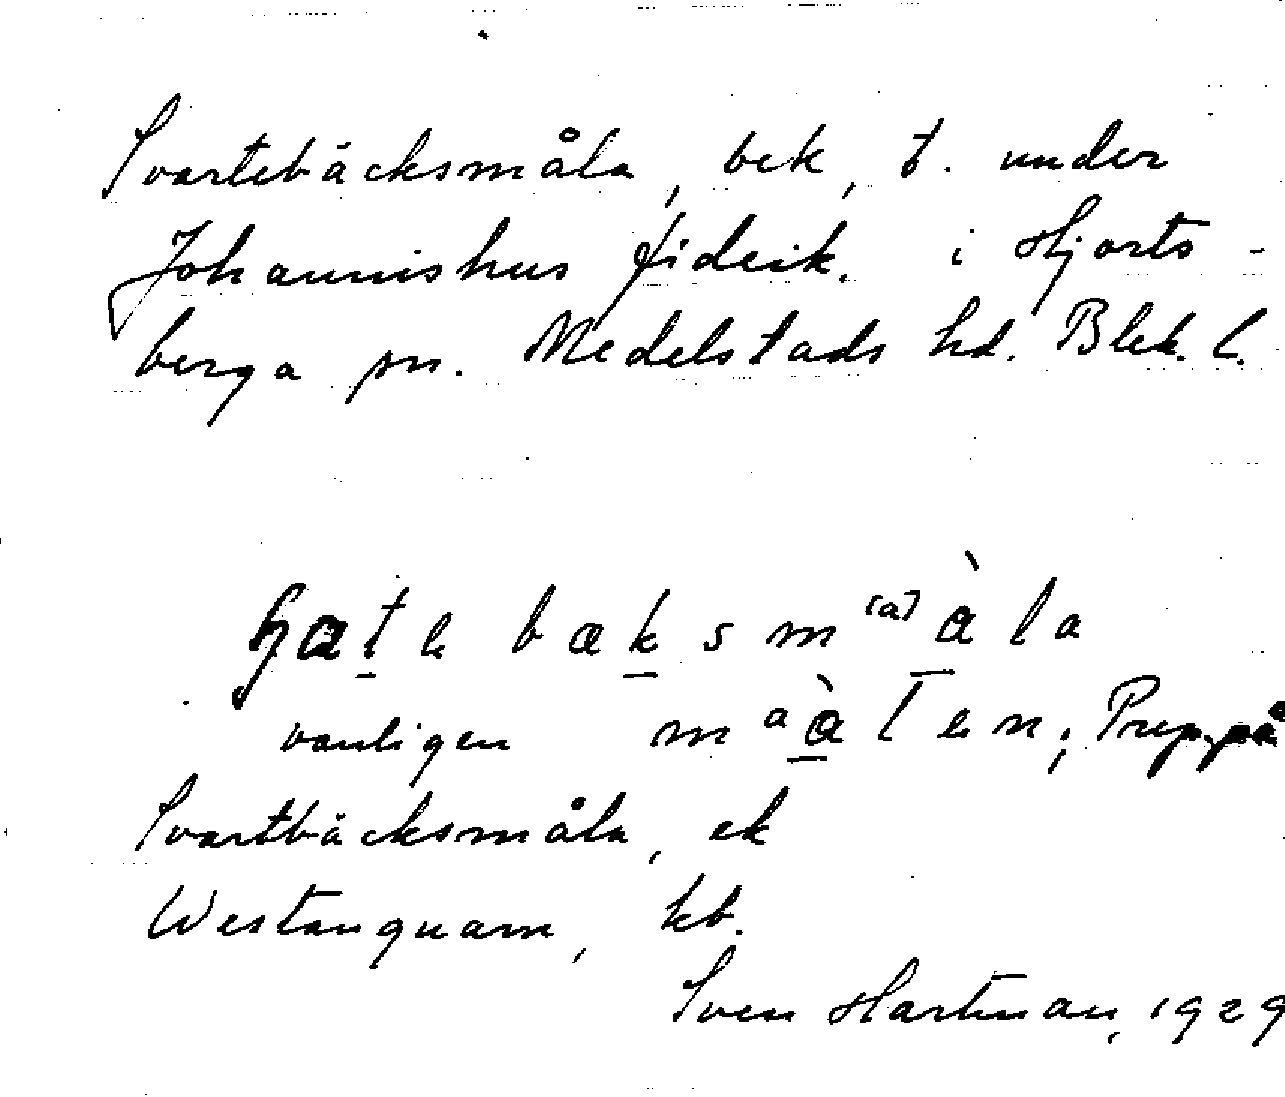 Svartebäcksmåla, bek, t. under
Johannishus fideik. i Hjorts-
berga sn. Medelstads hd. Blek. l.
bæksm⁽ᵃ⁾àla
vanligen mᵃàlen; Prep. på
Svartbäcksmåla, ek
Westanquarn, kb.
Sven Hartman, 1929